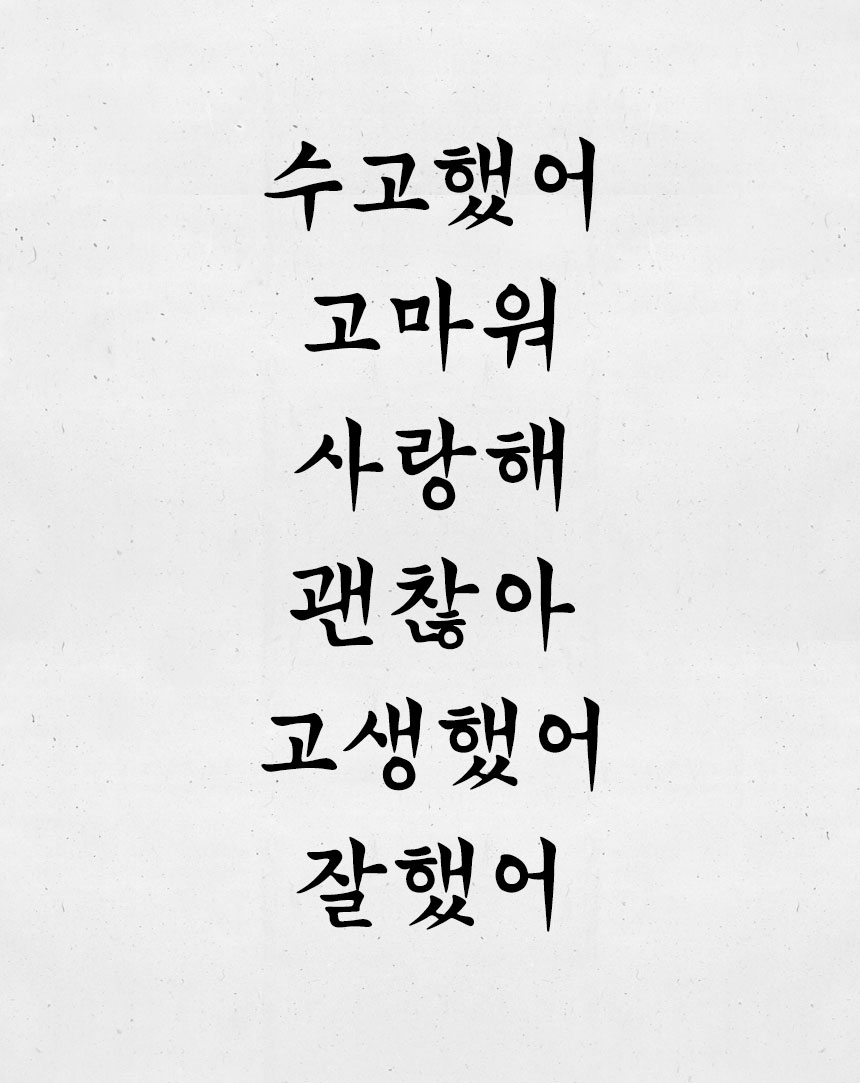 수고했어
고마워
사랑해
괜찮아
고생했어
잘했어